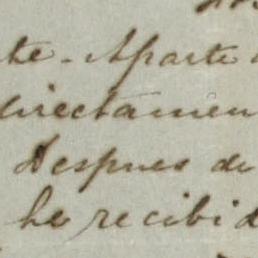 te - Aparte
directamen
Despues de
he recibid